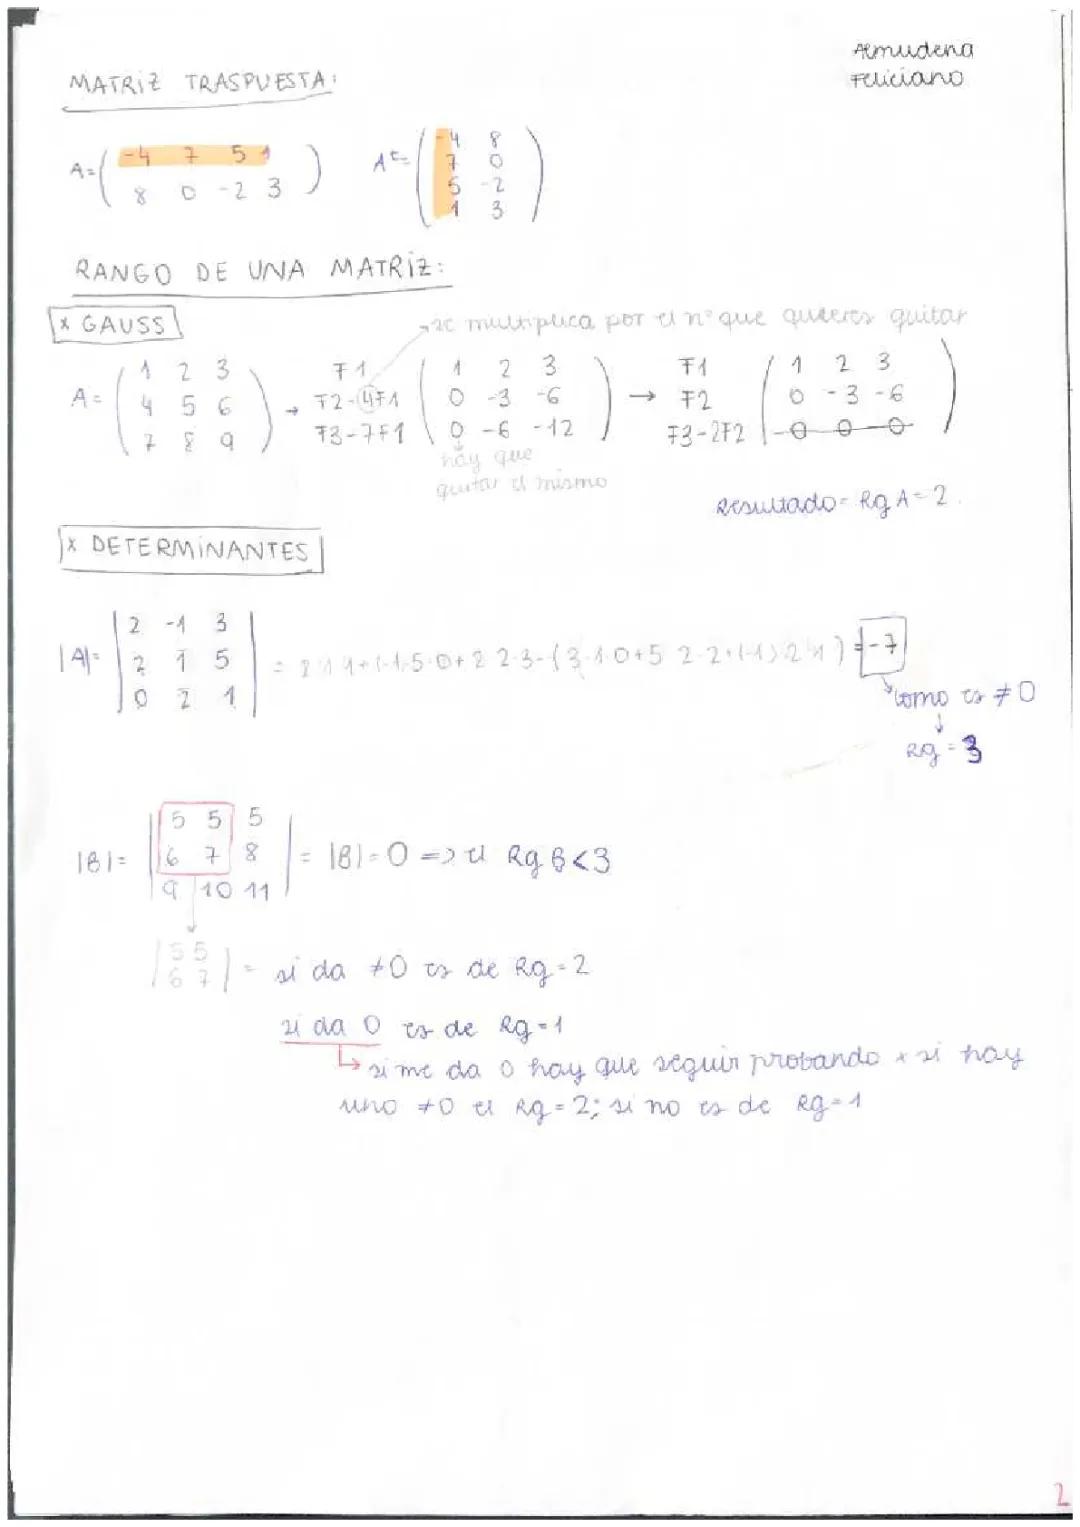 Almudena
Feliciano
MATRIZ TRASPUESTA:
A = ( -4 7 5 1
8 0 -2 3 )
Aᵗ = ( -4 8
7 0
5 -2
1 3 )
RANGO DE UNA MATRIZ:
x GAUSS
se multiplica por el nº que quieres quitar
A = ( 1 2 3
4 5 6
7 8 9 )
→ F1
F2-4F1
F3-7F1
( 1 2 3
0 -3 -6
0 -6 -12 )
hay que
quitar el mismo
→ F1
F2
F3-2F2
( 1 2 3
0 -3 -6
0 0 0 )
Resultado = Rg A = 2.
x DETERMINANTES
|A| = | 2 -1 3
2 1 5
0 2 1 |
= 2·1·1+(-1·5·0+2·2·3-(3·1·0+5·2·2+(-1)·2·1) = -7
como es ≠ 0
↓
Rg = 3
|B| = | 5 5 5
6 7 8
9 10 11 |
= |B| = 0 => el Rg B < 3
| 5 5
6 7 | = si da ≠0 es de Rg = 2
si da 0 es de Rg = 1
↳ si me da 0 hay que seguir probando x si hay
uno ≠0 el Rg = 2; si no es de Rg = 1
2